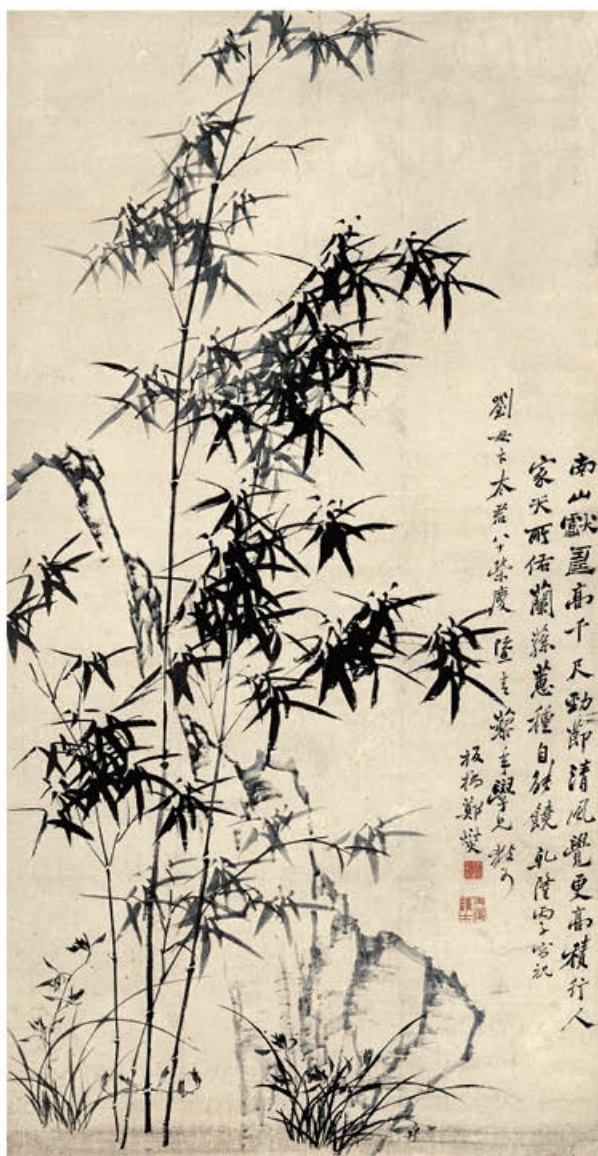 南山獻壽高千尺勁節清風覺更高積行人
家天所佑蘭蓀蕙種自能饒乾隆丙子寫祝
劉母卞太君八十榮慶 年學兄
板橋鄭燮